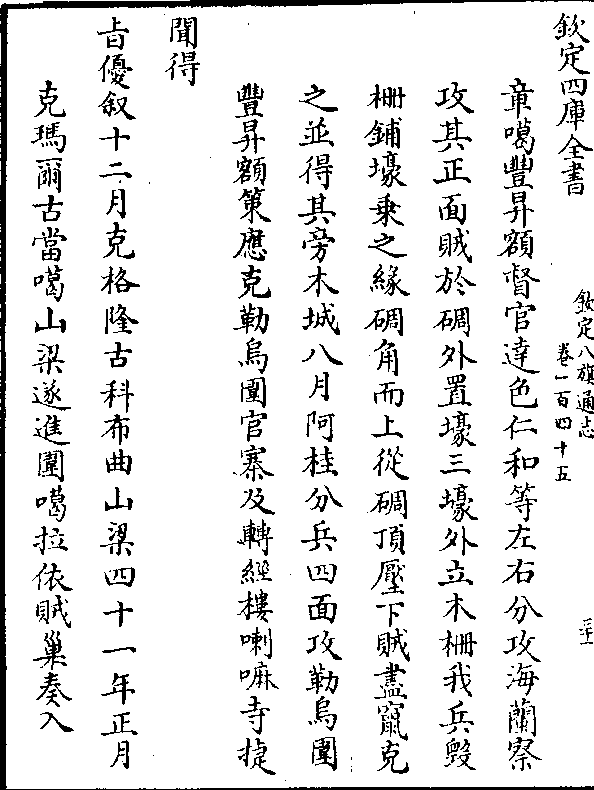 欽定四庫全書
欽定八旗通志
卷一百四十五
三十一
章噶豐昇額督官達色仁和等左右分攻海蘭察
攻其正面賊於碉外置壕三壕外立木柵我兵毀
柵鋪壕乗之緣碉角而上從碉頂壓下賊盡竄克
之並得其旁木城八月阿桂分兵四面攻勒烏圍
豐昇額策應克勒烏圍官寨及轉經樓喇嘛寺捷
聞得
㫖優叙十二月克格隆古科布曲山梁四十一年正月
克瑪爾古當噶山梁遂進圍噶拉依賊巢奏入